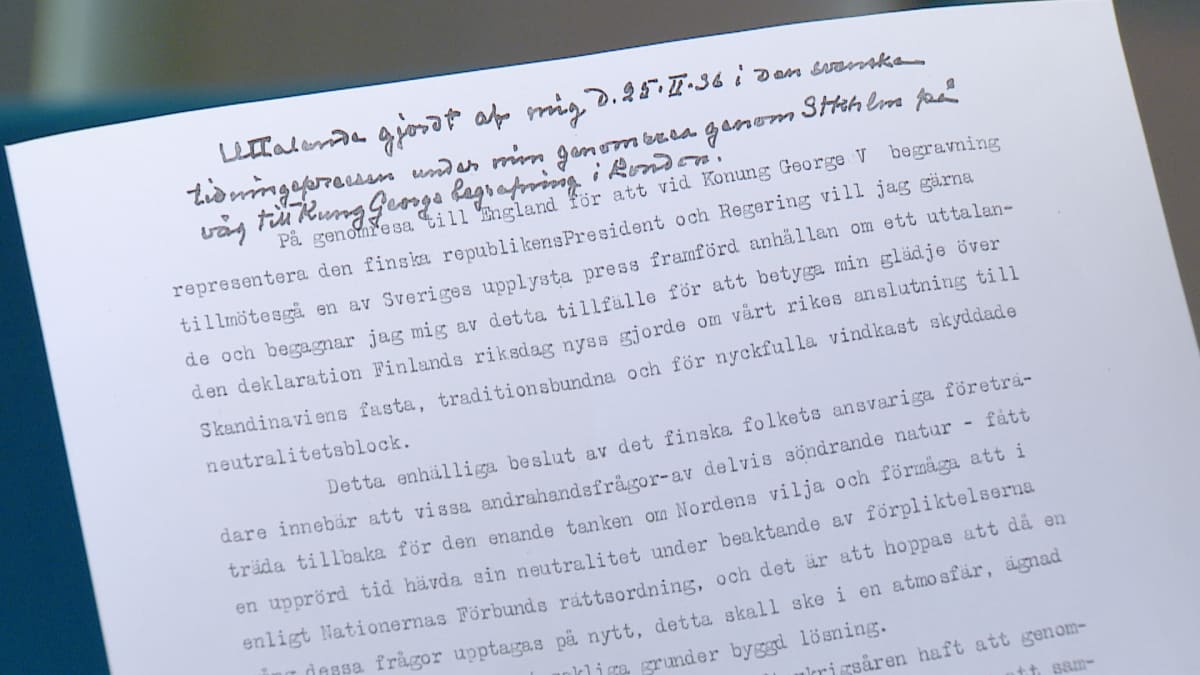 Uttalande gjordt af mig d. 25.II.36 i den svenska
tidningspressen under min genomresa genom Sthholm på
väg till Kung Georgs begrafning i London.
På genomresa till England för att vid Konung George V begravning
representera den finska republikensPresident och Regering vill jag gärna
tillmötesgå en av Sveriges upplysta press framförd anhållan om ett uttalan-
de och begagnar jag mig av detta tillfälle för att betyga min glädje över
den deklaration Finlands riksdag nyss gjorde om vårt rikes anslutning till
Skandinaviens fasta, traditionsbundna och för nyckfulla vindkast skyddade
neutralitetsblock.
Detta enhälliga beslut av det finska folkets ansvariga företrä-
dare innebär att vissa andrahandsfrågor-av delvis söndrande natur - fått
träda tillbaka för den enande tanken om Nordens vilja och förmåga att i
en upprörd tid hävda sin neutralitet under beaktande av förpliktelserna
enligt Nationernas Förbunds rättsordning, och det är att hoppas att då en
dessa frågor upptagas på nytt, detta skall ske i en atmosfär, ägnad
grunder byggd lösning.
krigsåren haft att genom-
att sam-